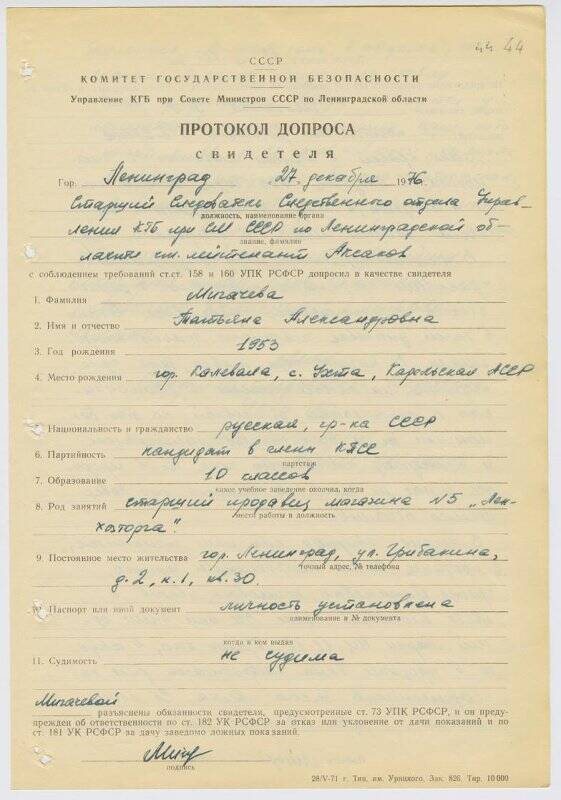 44 44
СССР
КОМИТЕТ ГОСУДАРСТВЕННОЙ БЕЗОПАСНОСТИ
Управление КГБ при Совете Министров СССР по Ленинградской области
ПРОТОКОЛ ДОПРОСА
свидетеля
Гор. Ленинград 27 декабря 1976
Старший следователь Следственного отдела Управ-
должность, наименование органа
ления КГБ при СМ СССР по Ленинградской об-
звание, фамилия
ласти ст. лейтенант Аксаков
с соблюдением требований ст.ст. 158 и 160 УПК РСФСР допросил в качестве свидетеля
1. Фамилия Мигачева
2. Имя и отчество Татьяна Александровна
3. Год рождения 1953
4. Место рождения гор. Калевала, с. Ухта, Карельская АССР
5. Национальность и гражданство русская, гр-ка СССР
6. Партийность кандидат в члены КПСС
партстаж
7. Образование 10 классов
какое учебное заведение окончил, когда
8. Род занятий старший продавец магазина N5 „Лен-
место работы и должность
хозторга".
9. Постоянное место жительства гор. Ленинград, ул. Грибакина,
точный адрес, № телефона
д. 2, к. 1, кв. 30.
10. Паспорт или иной документ личность установлена
наименование и № документа
когда и кем выдан
11. Судимость не судима
Мигачевой разъяснены обязанности свидетеля, предусмотренные ст. 73 УПК РСФСР, и он преду-
прежден об ответственности по ст. 182 УК РСФСР за отказ или уклонение от дачи показаний и по
ст. 181 УК РСФСР за дачу заведомо ложных показаний.
подпись
28/V-71 г. Тип. им. Урицкого. Зак. 826. Тир. 10 000